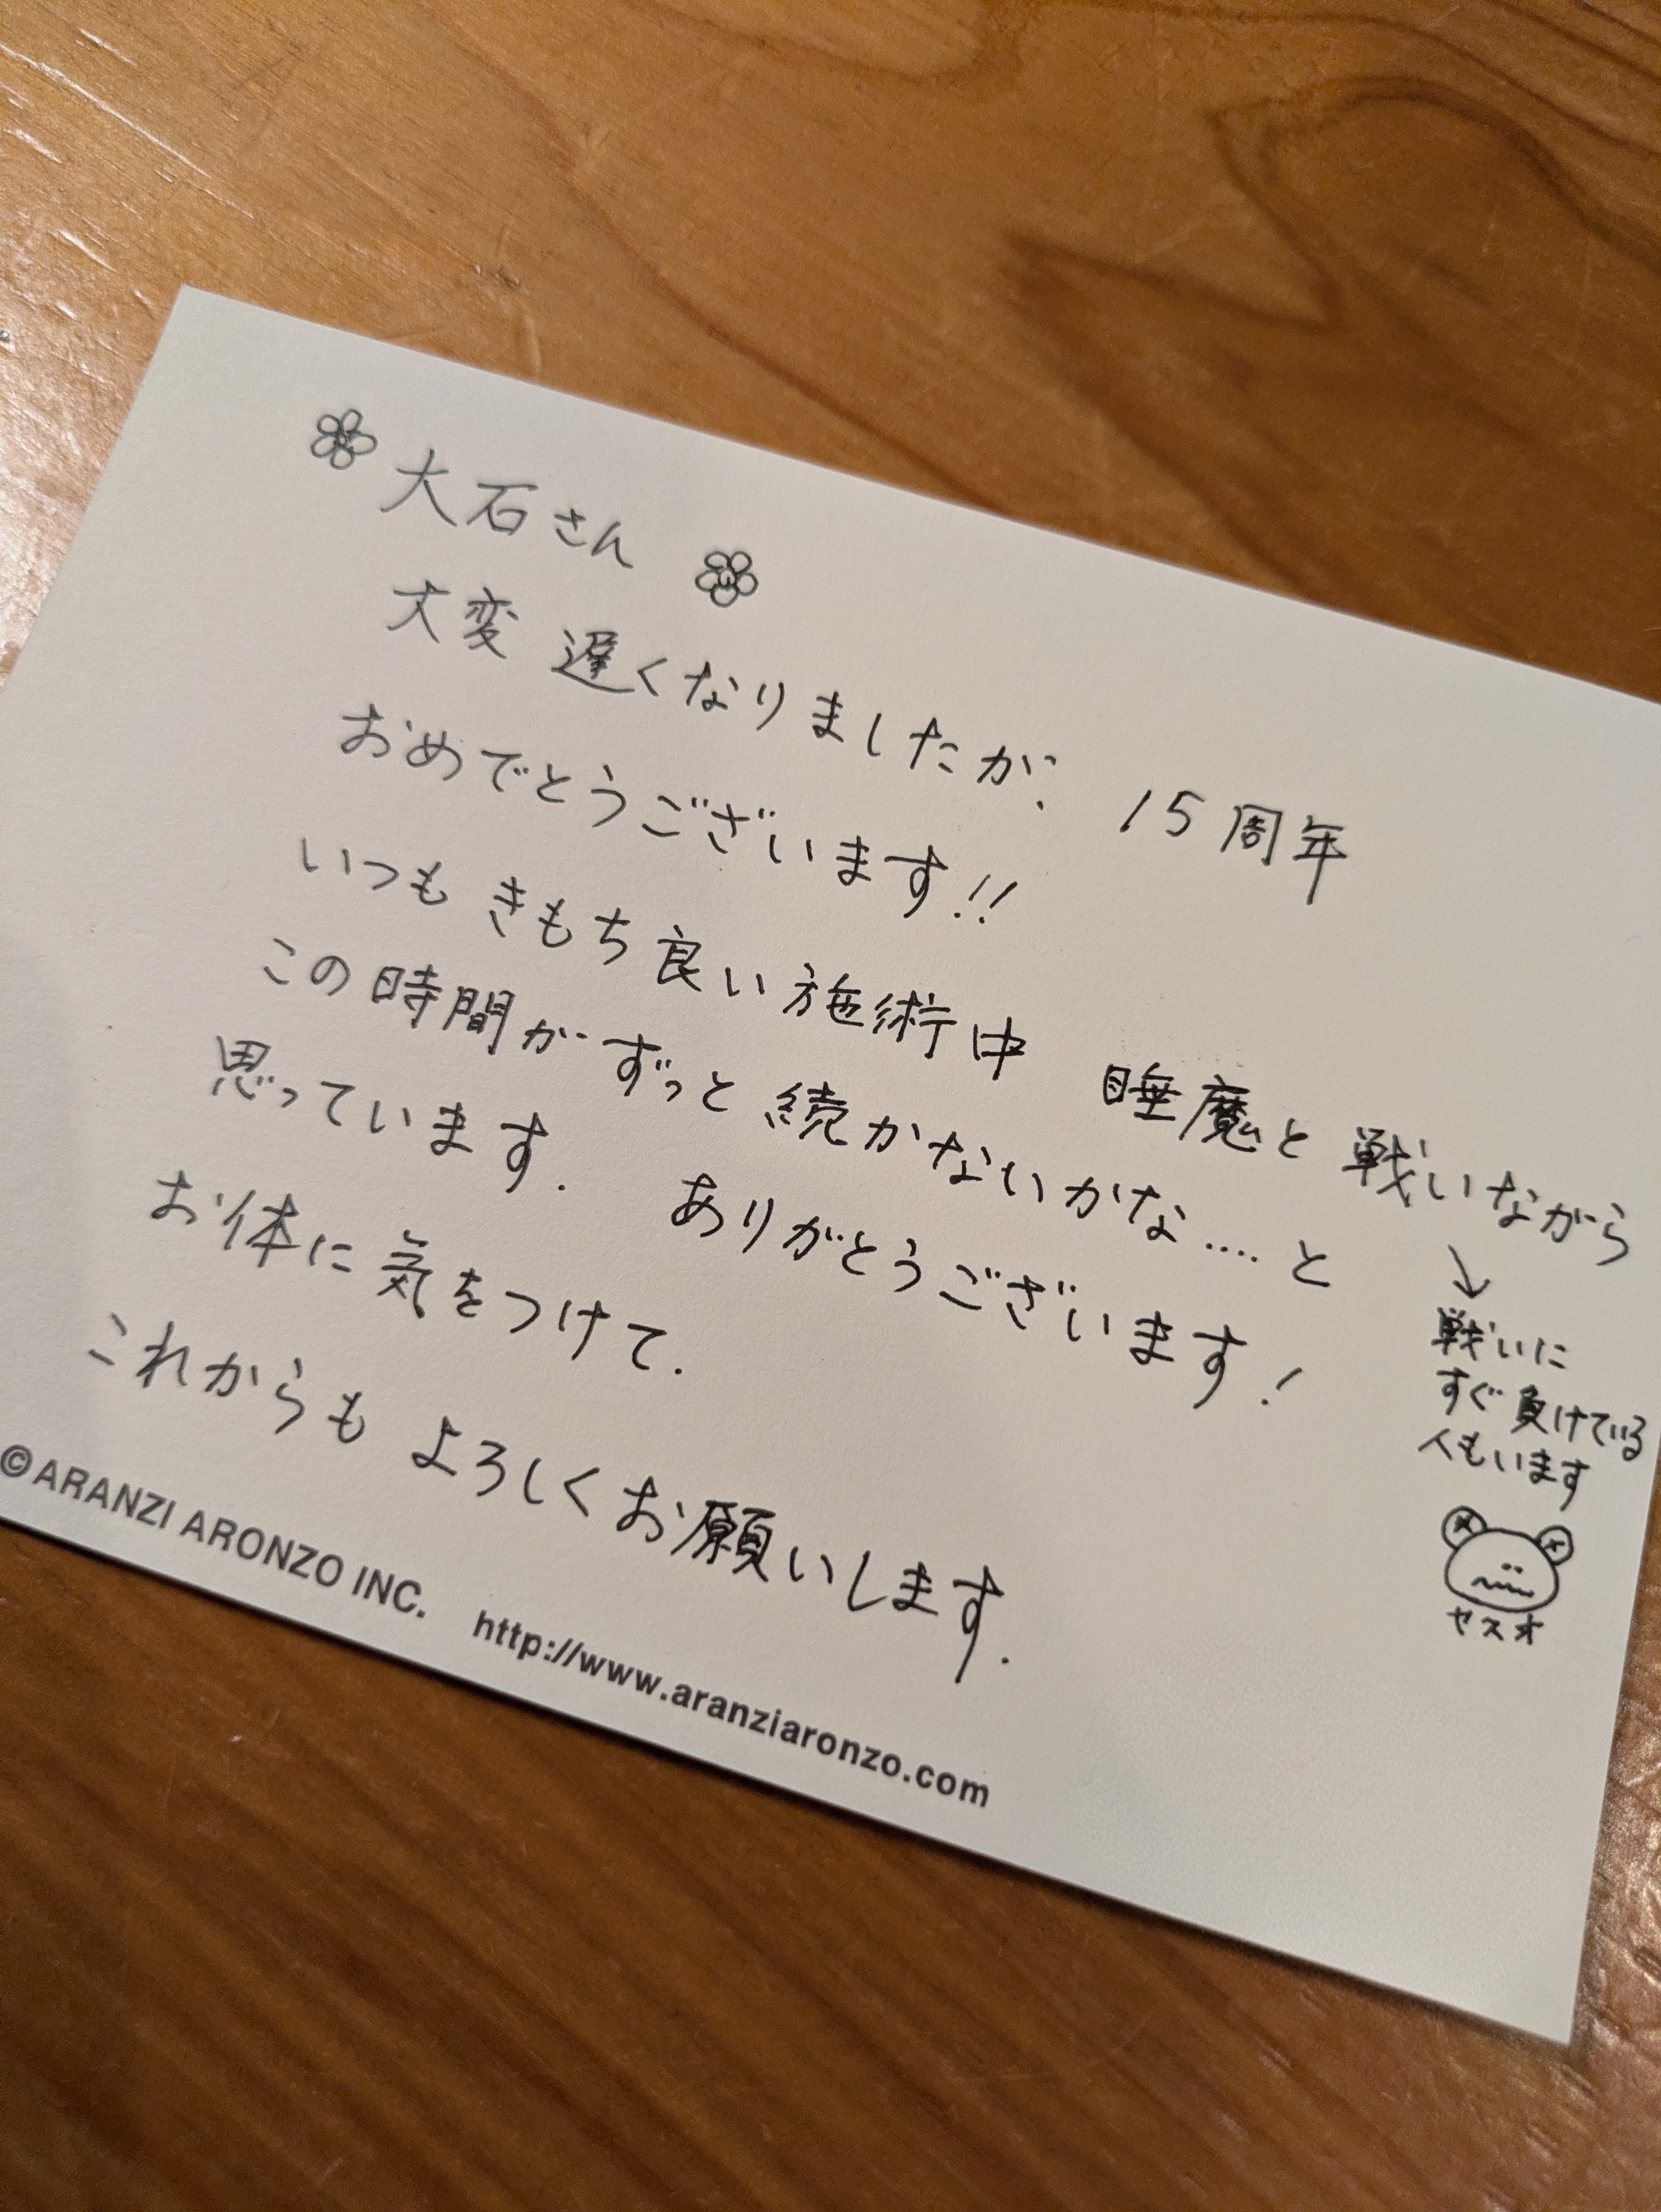 大石さん
大変 遅くなりましたが、 15周年
おめでとうございます!!
いつも きもち良い施術中 睡魔と戦いながら
この時間が ずっと続かないかな....と
思っています. ありがとうございます!
お体に気をつけて.
これからも よろしくお願いします.
→ 戦いに
すぐ負けている
人もいます
ヤスオ
©ARANZI ARONZO INC. http://www.aranziaronzo.com